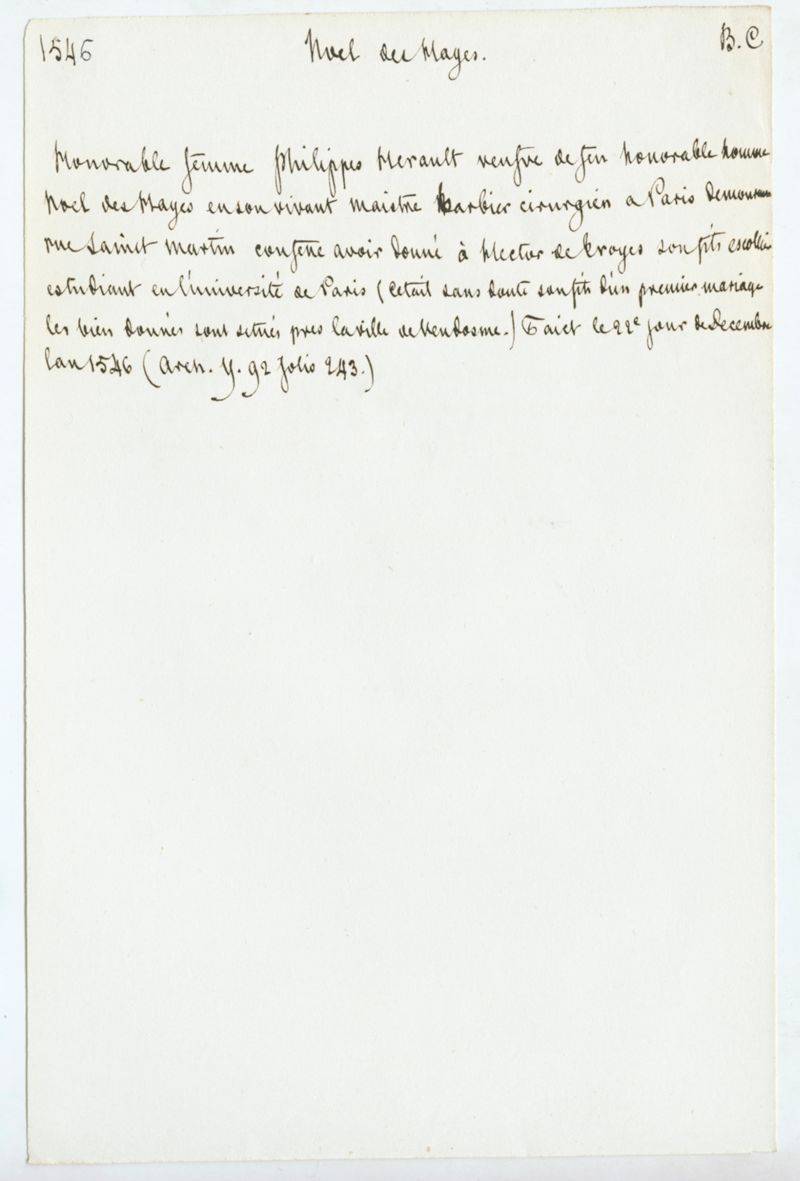 1546 Noel des Hayes. B. C
Honorable femme Philippes Herault veufve de feu honorable homme
Noel des Hayes en son vivant maistre barbier cirurgien a Paris demourant
rue Sainct Martin confene avoir donné à Hector de Troyes son fils escollier
estudiant en l'université de Paris (C'était sans doute son fils d'un premier mariage
les bien donnés sont setués pres la ville de Vendosme.) Faict le 22e jour de Decembre
lan 1546 (Arch. Y. 92 folio 243.)